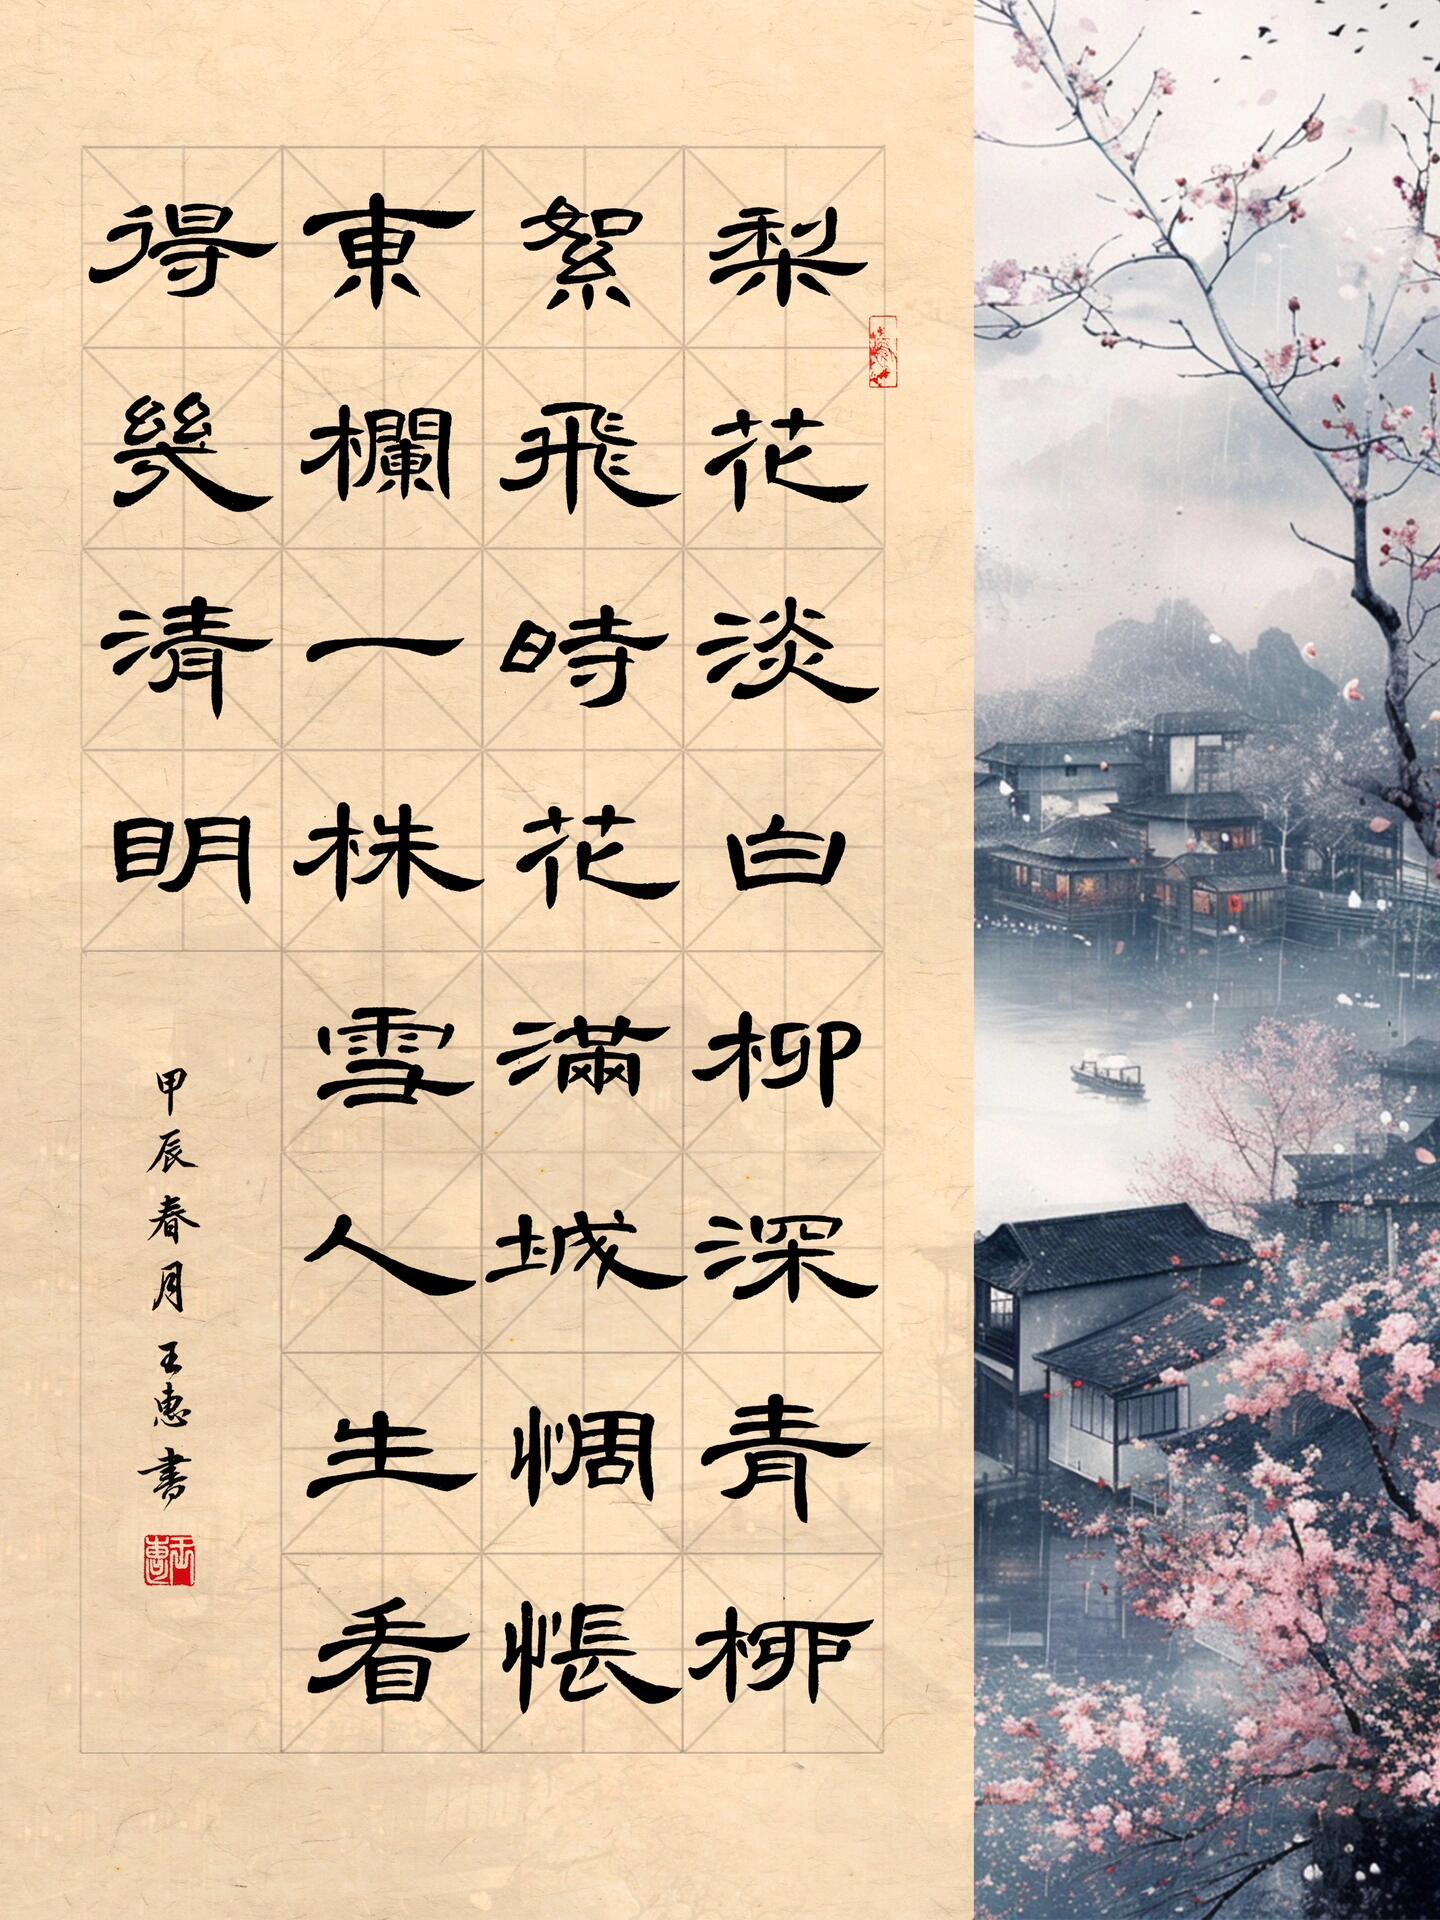 梨花淡白柳深青柳
絮飛時花滿城惆悵
東欄一株雪人生看
得幾清明
甲辰春月王惠書